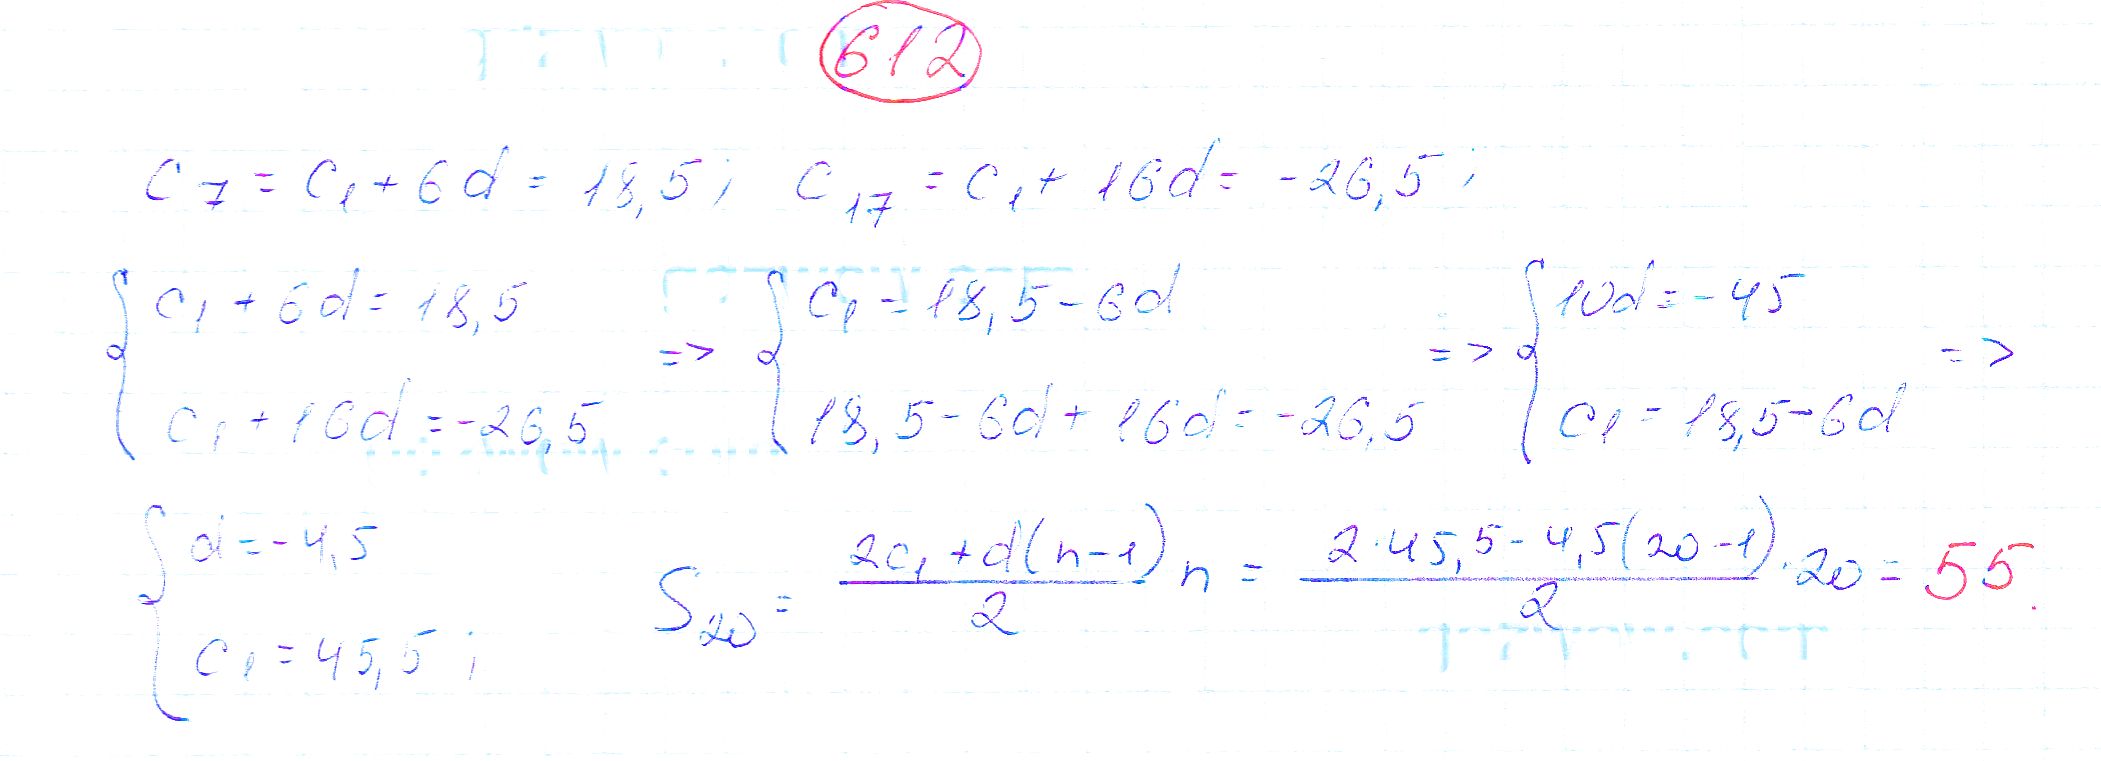 612
c₇ = c₁ + 6d = 18,5; c₁₇ = c₁ + 16d = -26,5;
{ c₁ + 6d = 18,5 => { c₁ = 18,5 - 6d => { 10d = -45 =>
c₁ + 16d = -26,5 18,5 - 6d + 16d = -26,5 c₁ = 18,5 - 6d
{ d = -4,5
c₁ = 45,5;
S₂₀ = (2c₁ + d(n-1))/2 n = (2·45,5 - 4,5(20-1))/2 · 20 = 55.